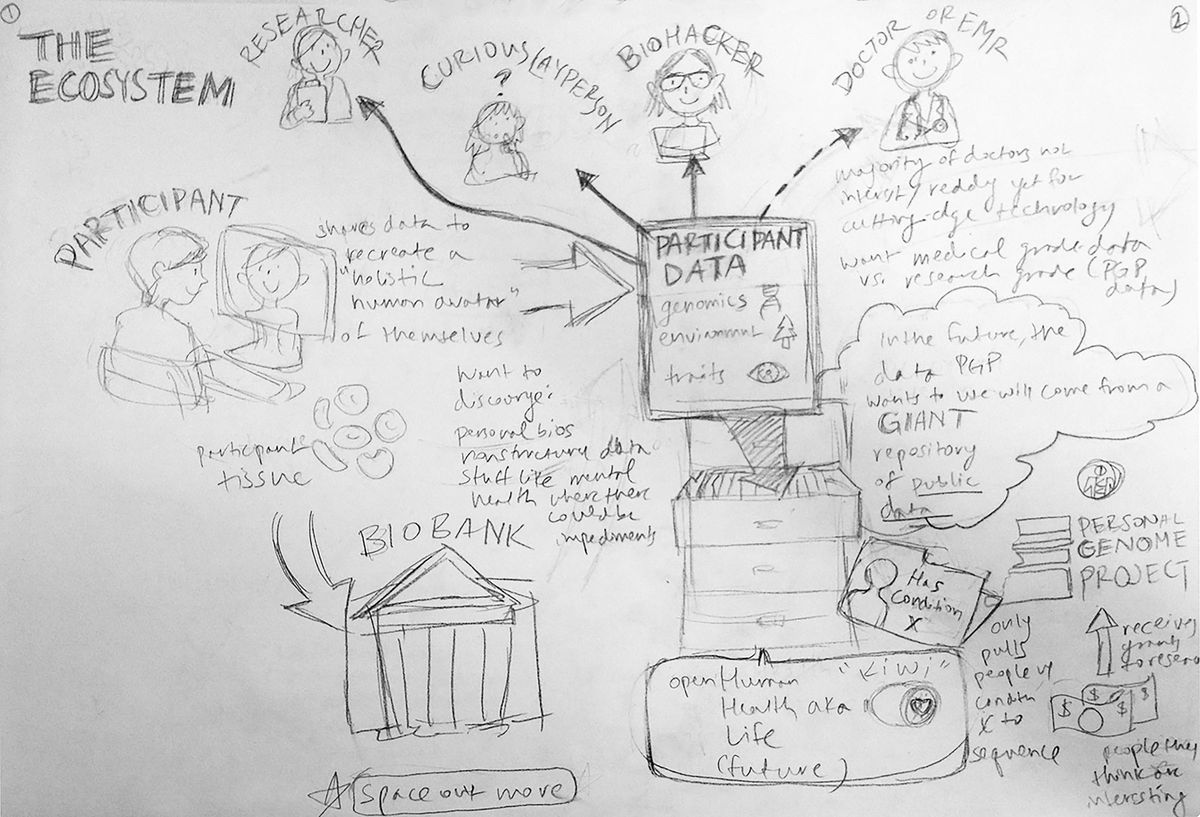 1
2
THE
ECOSYSTEM
RESEARCHER
CURIOUS LAYPERSON
?
BIOHACKER
DOCTOR OR EMR
majority of doctors not
interest/ready yet for
cutting-edge technology
want medical grade data
vs. research grade (PGP
data)
PARTICIPANT
shares data to
recreate a
"holistic
human avatar"
of themselves
PARTICIPANT
DATA
genomics
environmnt
traits
In the future, the
data PGP
wants to use will come from a
GIANT
repository
of public
data
want to
discourge:
personal bios
nonstructury data
stuff like mental
health where there
could be
impediments
participant
tissue
BIOBANK
Has
condition
X
PERSONAL
GENOME
PROJECT
only
pulls
people w/
conditn
X to
sequence
receives
grants
$ $ $ $
people they
think are
interssting
openHuman
Health aka
Life
(future)
"Kiwi"
space out more